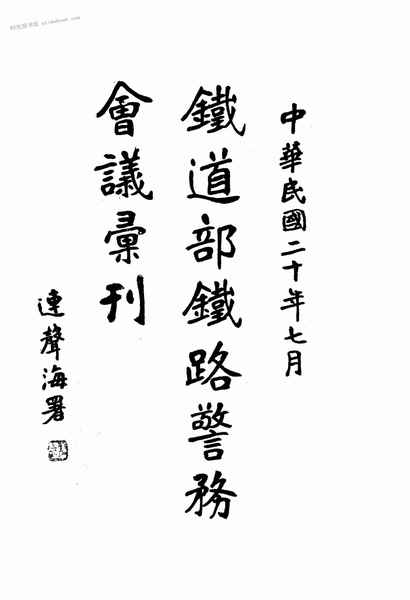 中華民國二十年七月
鐵道部鐵路警務
會議彙刊
連聲海署